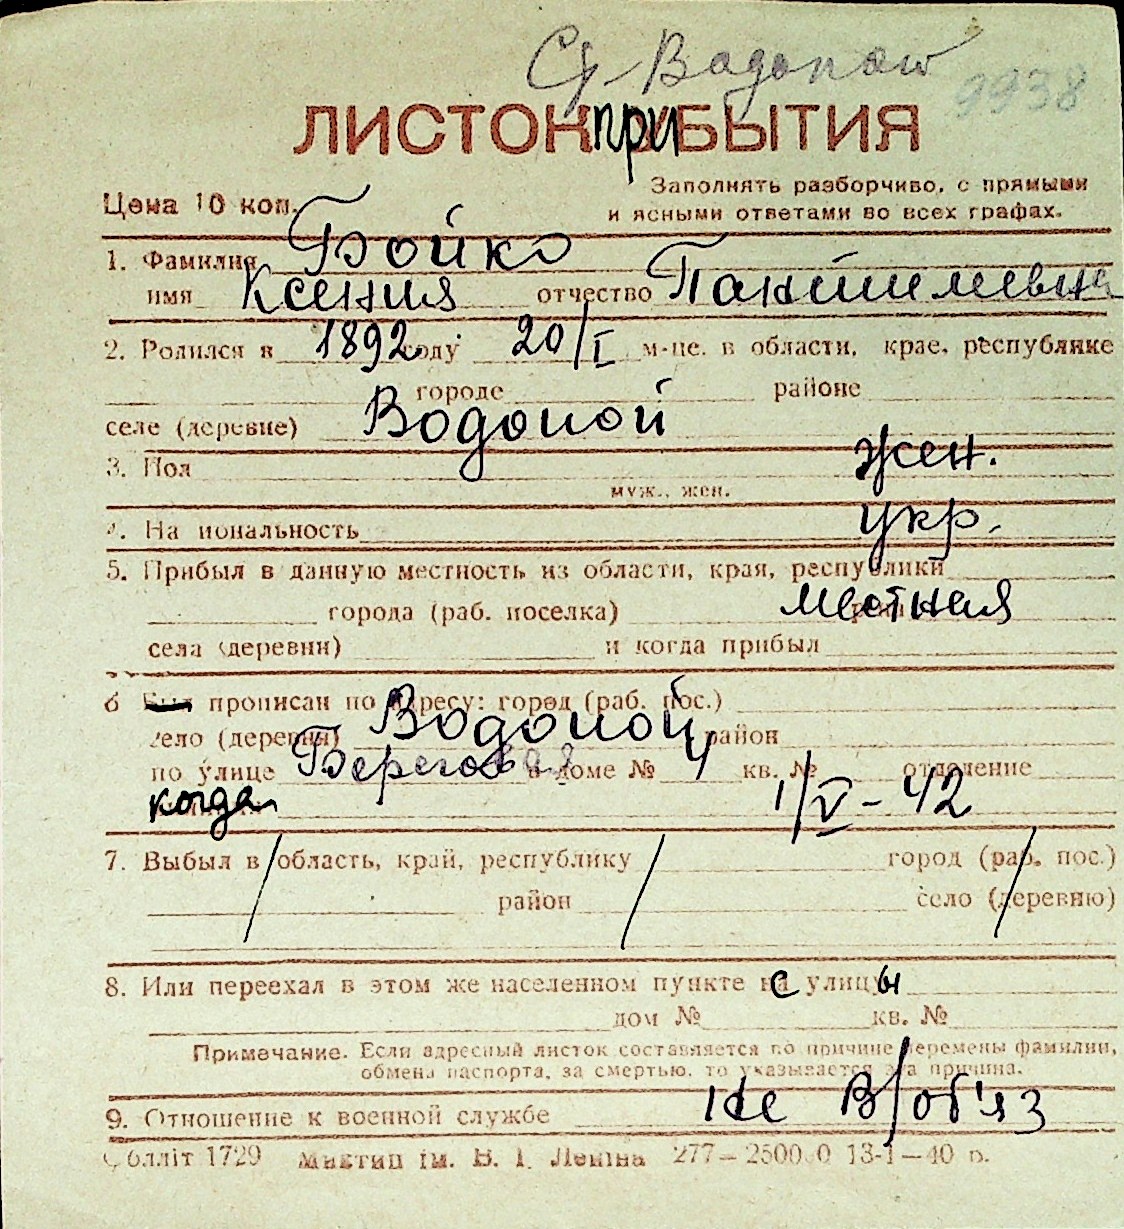 9938
ЛИСТОК ПРИБЫТИЯ
Цена 10 коп.
Заполнять разборчиво, с прямыми
и ясными ответами во всех графах.
1. Фамилия Бойко
имя Ксения отчество Пантилиевна
2. Родился в 1892 году 20/I м-це. в области, крае, республике
городе районе
селе (деревне) Водопой
3. Пол жен.
муж., жен.
4. Национальность укр.
5. Прибыл в данную местность из области, края, республики
города (раб. поселка) местная
села (деревни) и когда прибыл
6 прописан по адресу: город (раб. пос.)
село (деревня) Водопой район
по улице Береговая в доме № 4 кв. № отделение
когда 1/V-42
7. Выбыл в область, край, республику город (раб. пос.)
район село (деревню)
8. Или переехал в этом же населенном пункте с улицы
дом № кв. №
Примечание. Если адресный листок составляется по причине перемены фамилии,
обмена паспорта, за смертью, то указывается эта причина.
9. Отношение к военной службе Не в/об'яз
Облліт 1729 Миктип ім. В. І. Леніна 277—2500 0 13-1—40 р.